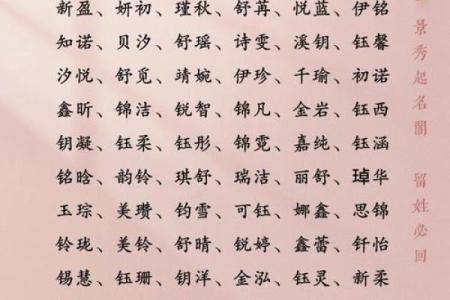 新盈、妍初、瑾秋、舒苒、悦蓝、伊铭
知诺、贝汐、舒瑶、诗雯、溪钥、钰馨
汐悦、舒觅、靖婉、伊珍、千瑜、初诺
鑫昕、锦洁、锐智、锦凡、金岩、钰西
钥凝、钰柔、钰彤、锦霓、嘉纯、钰涵
铭晗、韵铃、琪舒、瑞洁、丽舒、琸华
玉琮、美瓒、钧雪、可钰、娜鑫、思锦
铃珑、美铃、舒晴、锐婷、鑫蕾、钎怡
锡慧、钰珊、钥洋、金泓、钰灵、新柔
景秀起名閣
留姓必回